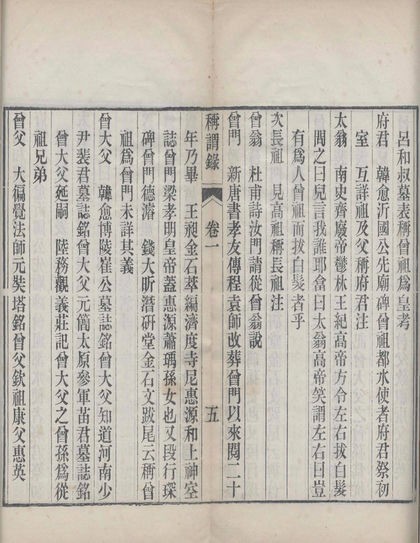 呂和叔墓表稱曾祖爲皇考
府君　韓愈沂國公先廟碑曾祖都水使者府君祭初
室　互詳祖及父稱府君注
太翁　南史齊廢帝鬱林王紀高帝方令左右拔白髮
問之曰兒言我誰耶答曰太翁高帝笑謂左右曰豈
有爲人曾祖而拔白髮者乎
次長祖　見高祖稱長祖注
曾翁　杜甫詩汝門請從曾翁說
曾門　新唐書孝友傳程袁師改葬曾門以來閱二十
稱謂錄　卷一　五
年乃畢　王昶金石萃編濟度寺尼惠源和上神空
誌曾門梁孝明皇帝蓋惠源蕭瑀孫女也又段行琛
碑曾門德濬　錢大昕潛硏堂金石文跋尾云稱曾
祖爲曾門未詳其義
曾大父　韓愈博陵崔公墓誌銘曾大父知道河南少
尹裴君墓誌銘曾大父元簡太原參軍苗君墓誌銘
曾大父延嗣　陸務觀義莊記曾大父之曾孫爲從
祖兄弟
曾父　大徧覺法師元奘塔銘曾父欽祖康父惠英